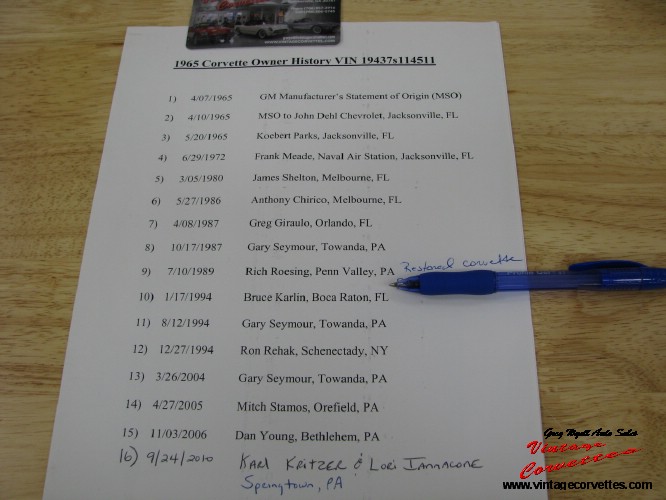 1965 Corvette Owner History VIN 19437s114511
1) 4/07/1965 GM Manufacturer's Statement of Origin (MSO)
2) 4/10/1965 MSO to John Dehl Chevrolet, Jacksonville, FL
3) 5/20/1965 Koebert Parks, Jacksonville, FL
4) 6/29/1972 Frank Meade, Naval Air Station, Jacksonville, FL
5) 3/05/1980 James Shelton, Melbourne, FL
6) 5/27/1986 Anthony Chirico, Melbourne, FL
7) 4/08/1987 Greg Giraulo, Orlando, FL
8) 10/17/1987 Gary Seymour, Towanda, PA
9) 7/10/1989 Rich Roesing, Penn Valley, PA Restored corvette
10) 1/17/1994 Bruce Karlin, Boca Raton, FL
11) 8/12/1994 Gary Seymour, Towanda, PA
12) 12/27/1994 Ron Rehak, Schenectady, NY
13) 3/26/2004 Gary Seymour, Towanda, PA
14) 4/27/2005 Mitch Stamos, Orefield, PA
15) 11/03/2006 Dan Young, Bethlehem, PA
16) 9/24/2010 Karl Kritzer & Lori Iannacone
Springtown, PA
Greg Wyatt Auto Sales
Vintage
Corvettes
www.vintagecorvettes.com